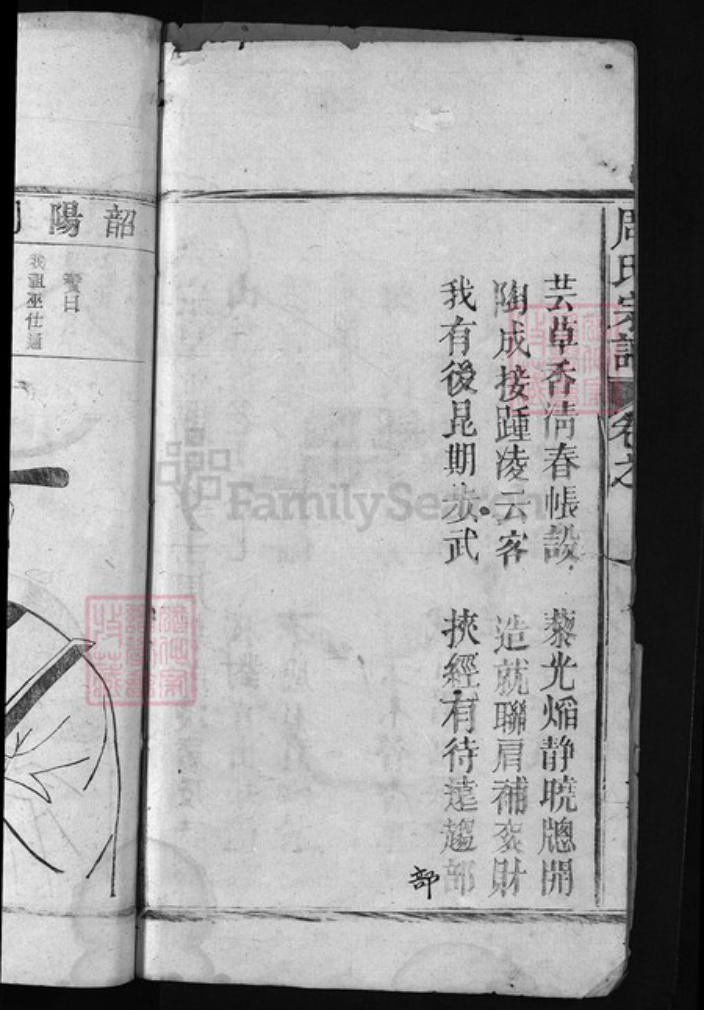 周氏宗譜 卷之
芸草香清春帳設 藜光熖静曉牕開
陶成接踵凌云客 造就聯肩補衮財
我有後昆期步武 挾經有待遠趨部
部
韶陽
我祖巫仕通
FamilySearch